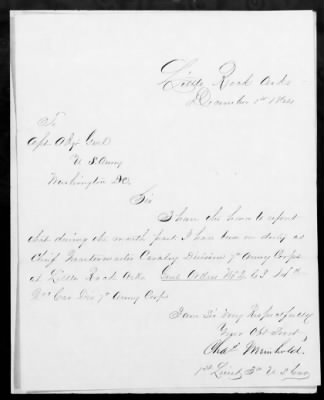 Little Rock Arks
December 1st 1864
To
Adjt Genl
U S Army
Washington D.C.
Sir
I have the honor to report
that during the month past I have been on duty as
Chief Quartermaster Cavalry Division 7th Army Corps
at Little Rock Arks Genl Orders No 2 C S 14th
Cav Div 7th Army Corps
I am Sir Very Respectfully
Your Obt Servt
Chas Meinhold
1st Lieut 5th U S Cav